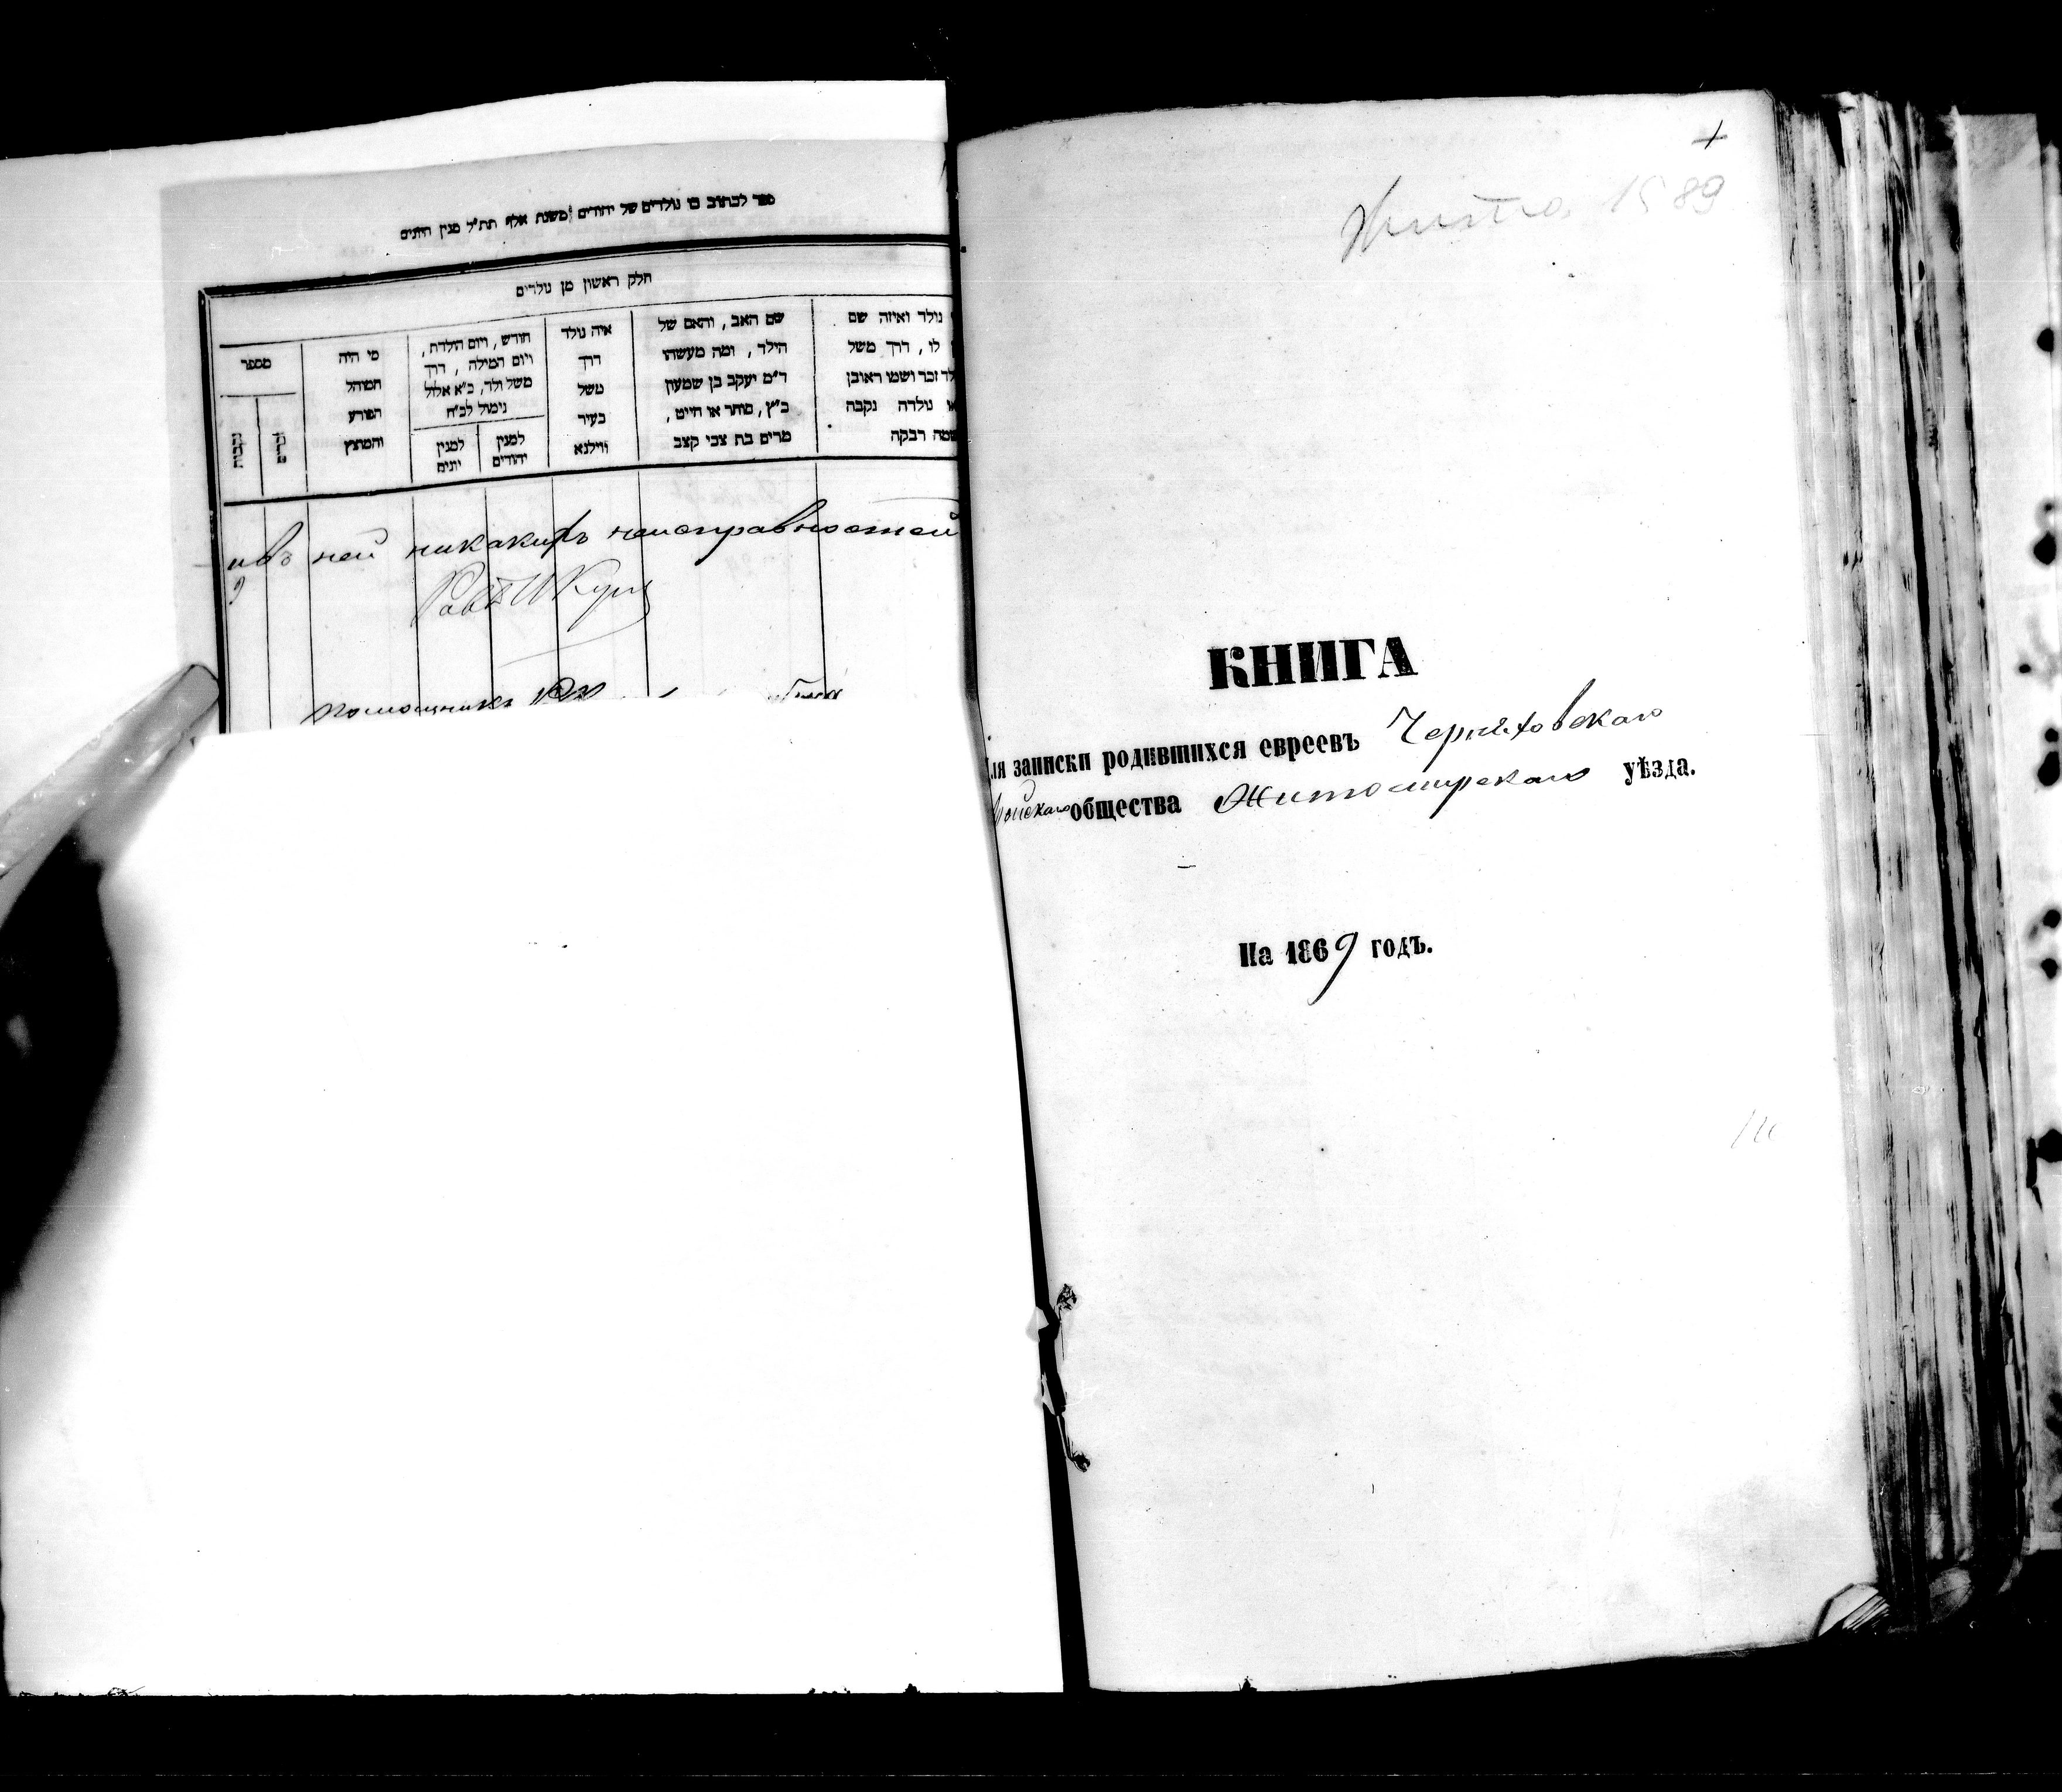 ספר לכתוב בו נולדים של יהודים משנת אלף תת״ל מנין היונים
חלק ראשון מן נולדים
נולד ואיזה שם
לו, דרך משל
ילד זכר ושמו ראובן
או נולדה נקבה
שמה רבקה
שם האב, והאם של
הילד, ומה מעשהו
ר״מ יעקב בן שמעון
כ״ץ, סוחר או חייט,
מרים בת צבי קצב
איה נולד
דרך
משל
בעיר
ווילנא
חודש, ויום הולדת,
ויום המילה, דרך
משל ולד, כ״א אלול
נימול לכ״ח
למנין
יהודים
למנין
יונים
מי היה
המוהל
הפורע
והמוצץ
מספר
זכרים
נקבות
ивъ ней никакихъ неисправностей
помощникъ
1589
КНИГА
для записки родившихся евреевъ Черняховскаго
общества Житомирскаго уѣзда.
На 1869 годъ.